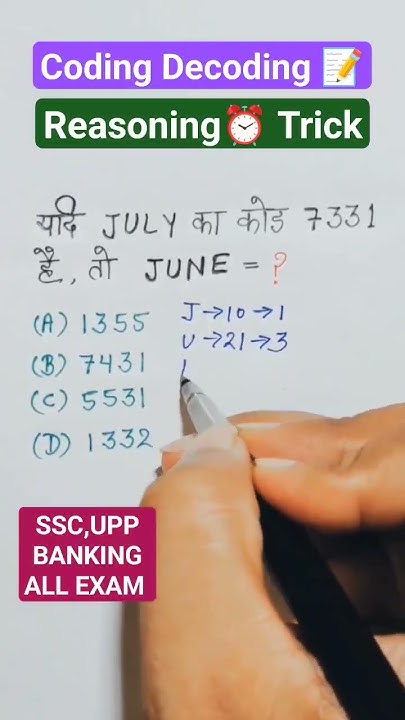 Coding Decoding 📝
Reasoning⏰ Trick
यदि JULY का कोड 7331
है, तो JUNE = ?
(A) 1355
(B) 7431
(C) 5531
(D) 1332
J→10→1
U→21→3
SSC,UPP
BANKING
ALL EXAM